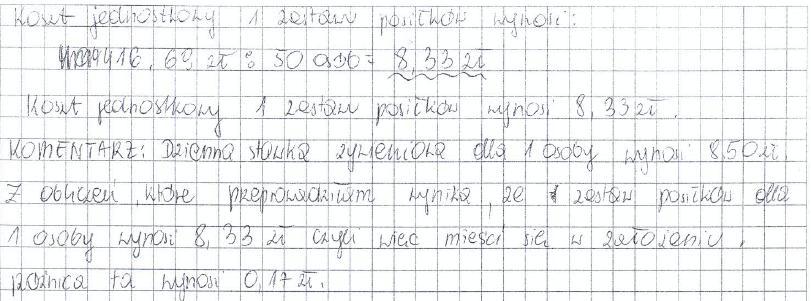 Koszt jednostkowy 1 zestaw posiłków wynosi:
416,69 zł : 50 osób = 8,33 zł
Koszt jednostkowy 1 zestaw posiłków wynosi 8,33 zł.
KOMENTARZ: Dzienna stawka żywieniowa dla 1 osoby wynosi 8,50 zł.
Z obliczeń, które przeprowadziłam wynika, że 1 zestaw posiłków dla
1 osoby wynosi 8,33 zł czyli więc mieści się w założeniu,
różnica ta wynosi 0,17 zł.